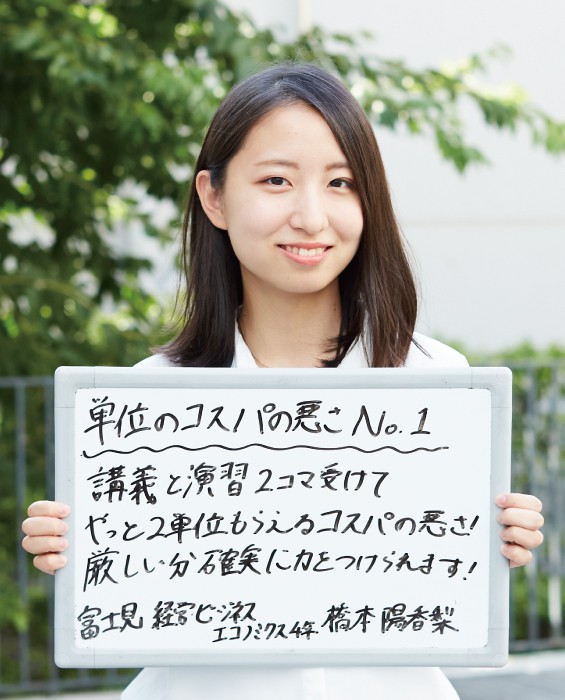 単位のコスパの悪さ No.1
講義と演習2コマ受けて
やっと2単位もらえるコスパの悪さ!
厳しい分確実に力をつけられます!
富士見 経営ビジネス
エコノミクス4年 橋本 陽香梨